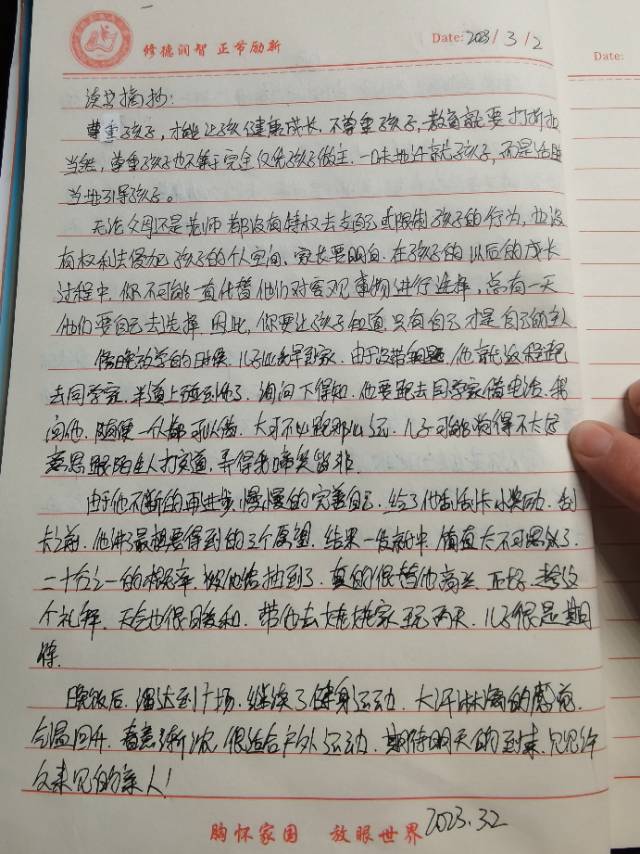 修德润智 正节励新
Date: 2023/3/2
Date:
读书摘抄:
尊重孩子,才能让孩子健康成长.不尊重孩子,教育就要打折扣
当然,尊重孩子也不等于完全任凭孩子做主.一味地迁就孩子,而是适
当地引导孩子。
无论父母还是老师都没有特权去支配或限制孩子的行为,也没
有权利去侵犯孩子的个人空间,家长要明白.在孩子的以后的成长
过程中.你不可能一直代替他们对客观事物进行选择,总有一天
他们要自己去选择.因此,你要让孩子知道.只有自己才是自己的主人
傍晚放学的时候.儿子比我早到家.由于没带钥匙,他就没程跑
去同学家.半道上碰到他了.询问下得知.他要跑去同学家借电话.我
问他.随便一个人都可以借.大可不必跑那么远.儿子可能觉得不太好
意思跟陌生人打交道,弄得我啼笑皆非.
由于他不断的再进步.慢慢的完善自己.给了他刮刮卡小奖励.刮
卡之前.他讲了最想要得到的3个愿望.结果一发就中.简直太不可思议了.
二十分之一的概率.被他给抽到了.真的很替他高兴.正好.
个礼拜.天气也很暖和.带他去姥姥家玩两天.儿子很是期
待.
晚饭后.溜达到广场.继续了健身运动.大汗淋漓的感觉.
气温回升.春意渐浓.很适合户外运动.期待明天的到来.见见许
久未见的亲人!
2023.3.2
胸怀家国 放眼世界